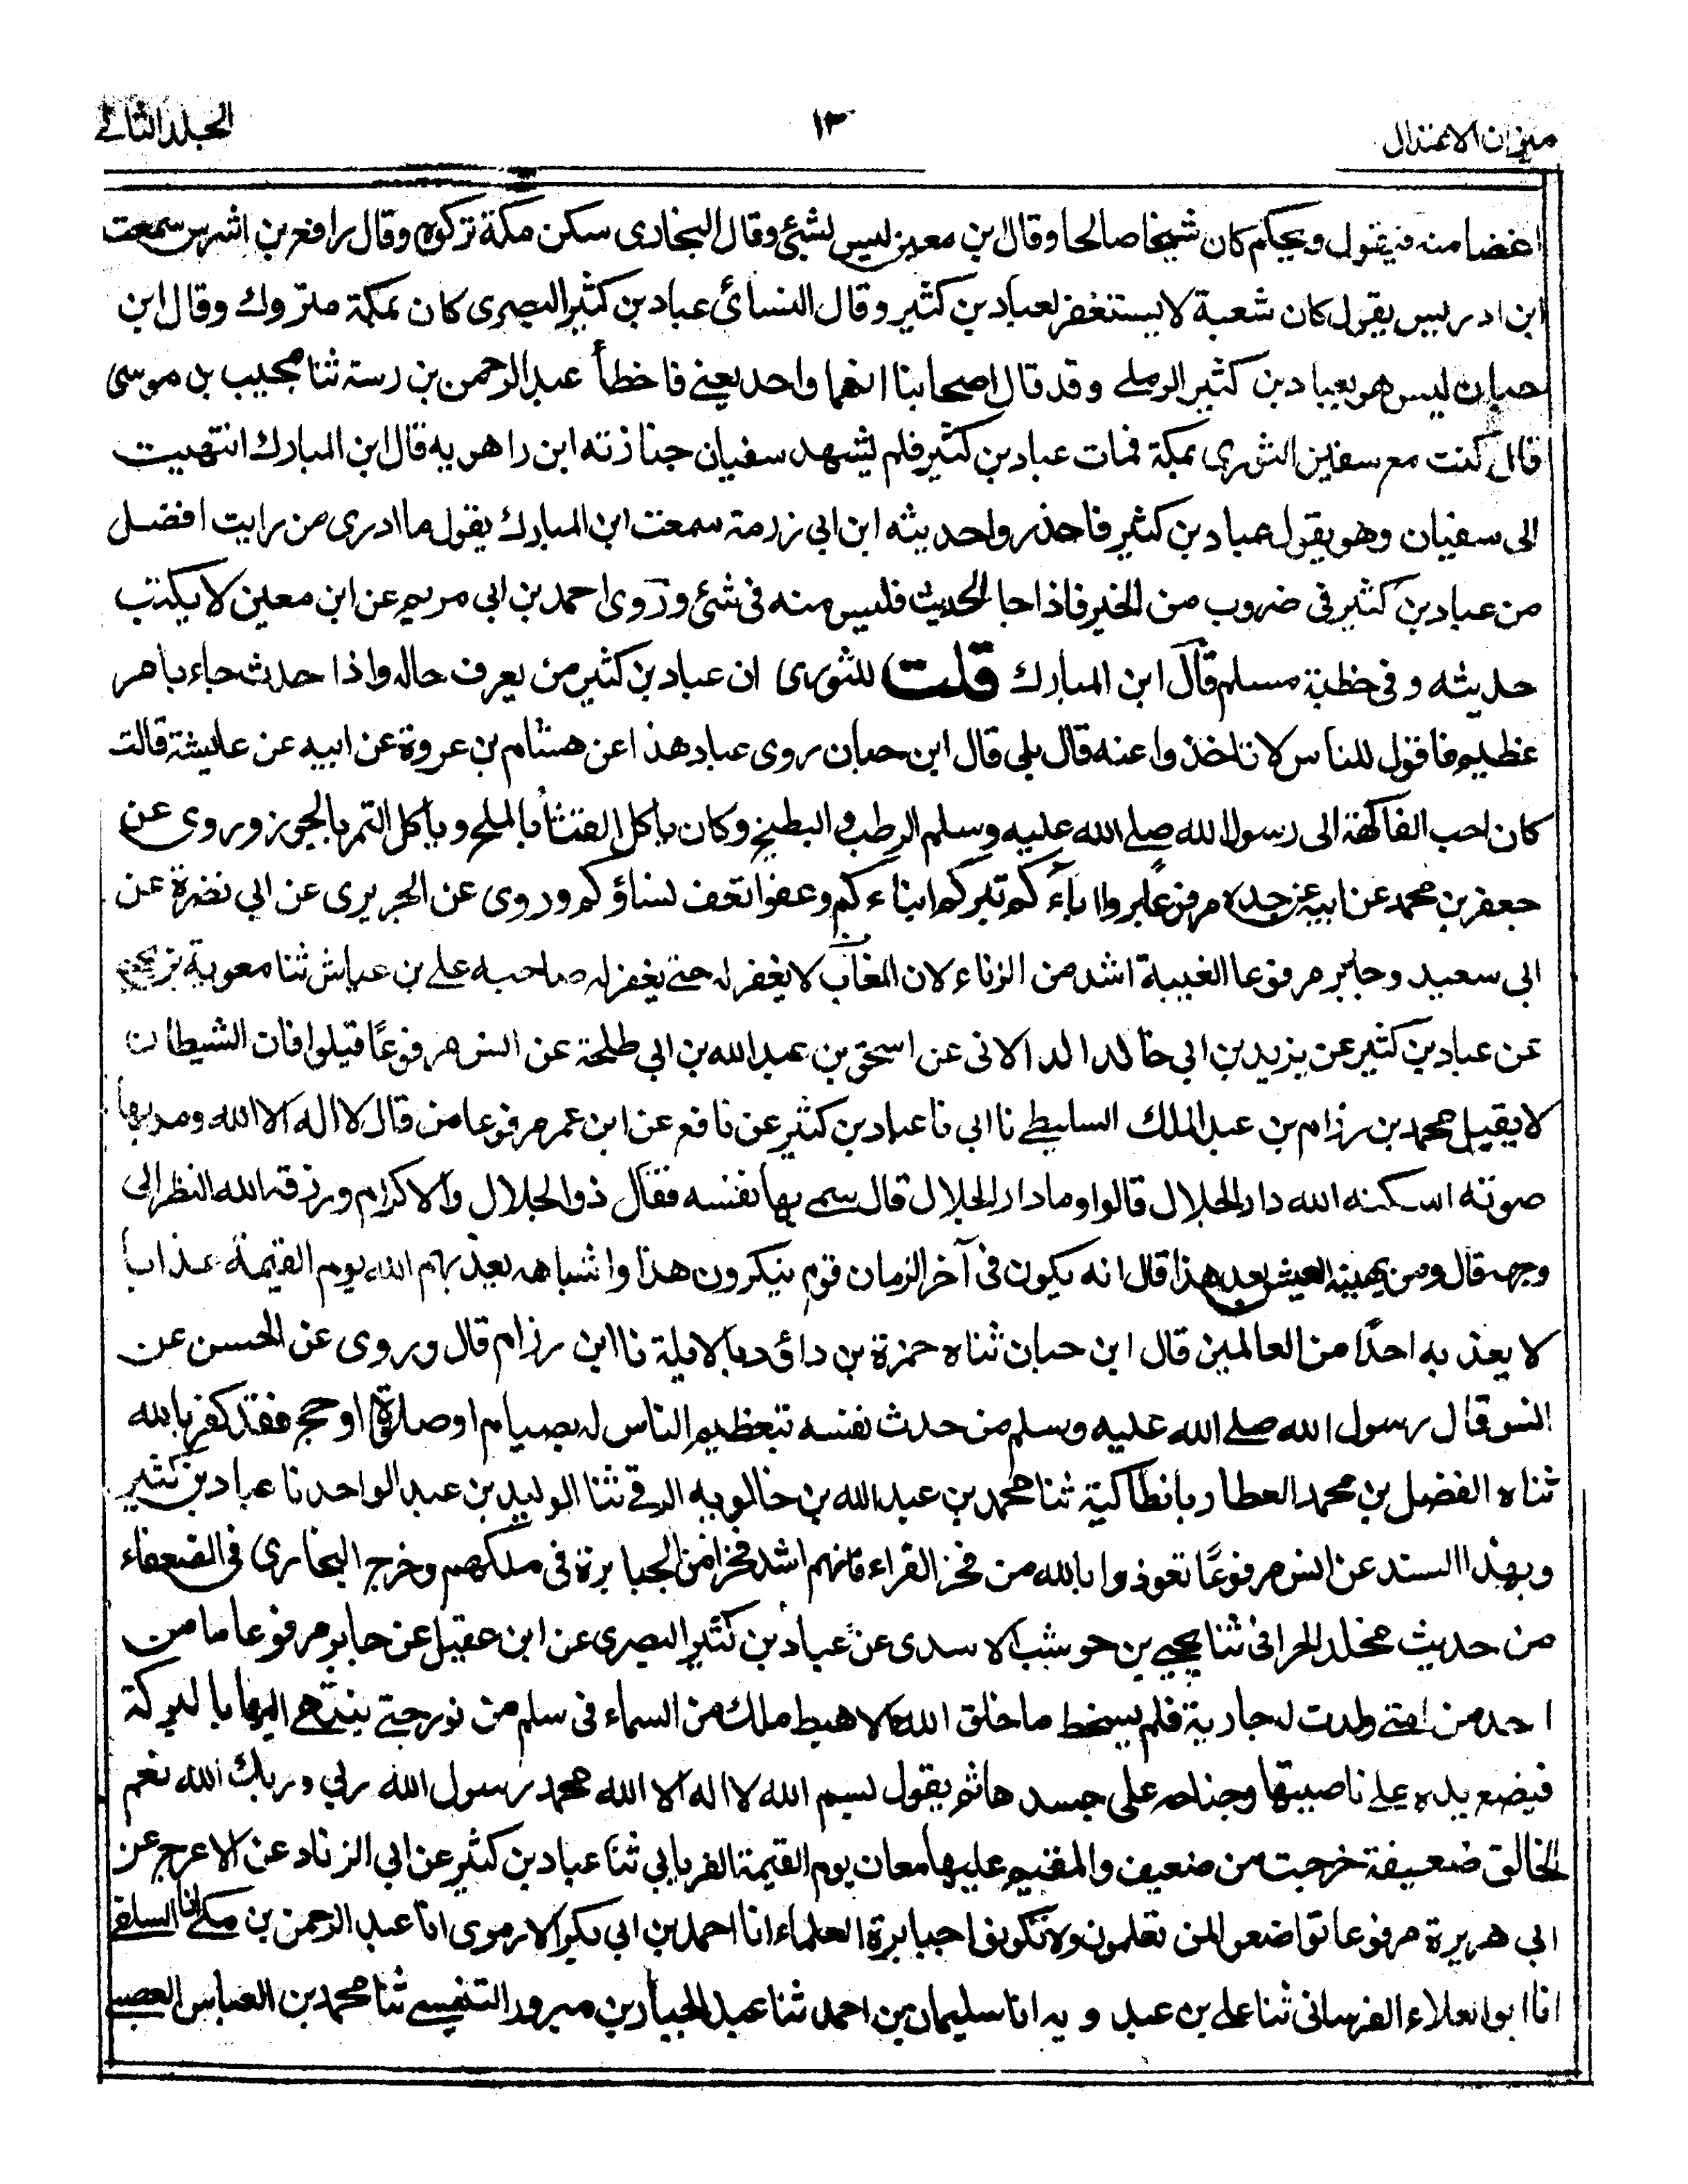 ميزان الاعتدال
١٣
المجلد الثاني
اغضا منه فيقول ويحكم كان شيخا صالحا وقال ابن معين ليس بشئ وقال البخارى سكن مكة تركوه وقال رافع بن اشرس سمعت
ابن ادريس يقول كان شعبة لا يستغفر لعباد بن كثير وقال النسائى عباد بن كثير البصرى كان بمكة متروك وقال ابن
حبان ليس هو بعباد بن كثير الرملى وقد قال اصحابنا انهما واحد يعنى فاخطأ عبد الرحمن بن رسته ثنا مجيب بن موسى
قال كنت مع سفين الثورى بمكة فمات عباد بن كثير فلم يشهد سفيان جنازته ابن راهويه قال ابن المبارك انتهيت
الى سفيان وهو يقول عباد بن كثير فاحذروا حديثه ابن ابى رزمة سمعت ابن المبارك يقول ما ادرى من رايت افضل
من عباد بن كثير فى ضروب من الخير فاذا جا الحديث فليس منه فى شئ وروى احمد بن ابى مريم عن ابن معين لا يكتب
حديثه وفى خطبة مسلم قال ابن المبارك قلت للثورى ان عباد بن كثير من يعرف حاله واذا حدث جاء بامر
عظيم فاقول للناس لا تاخذوا عنه قال بلى قال ابن حبان روى عباد هذا عن هشام بن عروة عن ابيه عن عايشة قالت
كان احب الفاكهة الى رسول الله صلى الله عليه وسلم الرطب والبطيخ وكان ياكل القثأ بالملح وياكل التمر بالجوز وروى عن
جعفر بن محمد عن ابيه عن جده مرفوعا بروا اباءكم تبركم ابناءكم وعفوا تعف نساؤكم وروى عن الجريرى عن ابى نضرة عن
ابى سعيد وجابر مرفوعا الغيبة اشد من الزناء لان المغتاب لا يغفر له حتى يغفر له صاحبه على بن عياش ثنا معوية بن يحيى
عن عباد بن كثير عن يزيد بن ابى خالد الدالانى عن اسحق بن عبد الله بن ابى طلحة عن انس مرفوعًا قيلوا فان الشيطان
لا يقيل محمد بن رزام بن عبد الملك السليطى نا ابى نا عباد بن كثير عن نافع عن ابن عمر مرفوعا من قال لا اله الا الله ومد بها
صوته اسكنه الله دار الجلال قالوا وما دار الجلال قال سمى بها نفسه فقال ذو الجلال والاكرام ورزقه الله النظر الى
وجهه قال ومن يهنيه العيش بعد هذا قال انه يكون فى آخر الزمان قوم ينكرون هذا واشباهه يعذبهم الله يوم القيمة عذابا
لا يعذبه احدًا من العالمين قال ابن حبان ثناه حمزة بن داؤد بالابلة نا ابن رزام قال وروى عن الحسن عن
انس قال رسول الله صلى الله عليه وسلم من حدث نفسه تبعظيم الناس له بصيام او صلاة او حج فقد كفر بالله
ثناه الفضل بن محمد العطار بانطاكية ثنا محمد بن عبد الله بن خالويه الرقى ثنا الوليد بن عبد الواحد نا عباد بن كثير
وبهذا السند عن انس مرفوعًا تعوذوا بالله من فخر القراء فانهم اشد فخرا من الجبابرة فى ملكهم وخرج البخارى فى الضعفاء
من حديث مخلد الحرانى ثنا يحيى بن حوشب الاسدى عن عباد بن كثير البصرى عن ابن عقيل عن جابر مرفوعا ما من
احد من امتى ولدت له جارية فلم يسخط ما خلق الله الا هبط ملك من السماء فى سلم من نور حتى ينتهى اليها بالبركة
فيضع يده على ناصيتها وجناحه على جسدها ثم يقول بسم الله لا اله الا الله محمد رسول الله ربى وربك الله نعم
الخالق ضعيفة خرجت من ضعيف والمقيم عليها معان يوم القيمة الفريابى ثنا عباد بن كثير عن ابى الزناد عن الاعرج عن
ابى هريرة مرفوعا تواضعوا لمن تعلمون ولا تكونوا جبابرة العلماء انا احمد بن ابى بكر الارموى انا عبد الرحمن بن مكى انا السلفى
انا ابو العلاء الفرسانى ثنا على بن عبدويه انا سليمان بن احمد ثنا عبد الجبار بن ثنا محمد بن العباس